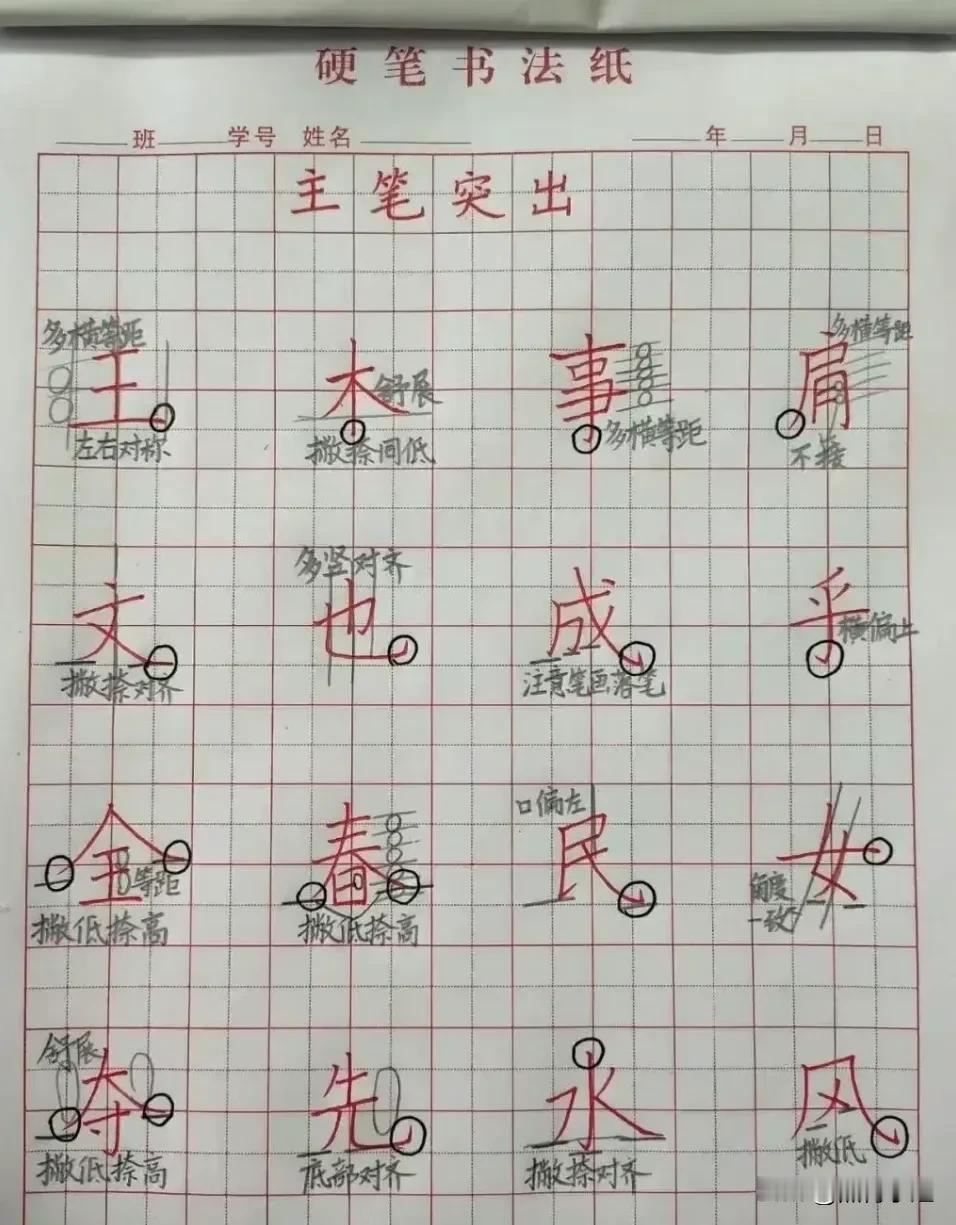 硬笔书法纸
班 学号 姓名 年 月 日
主笔突出
多横等距 多横等距
王 木 舒展 事 肩
左右对称 撇捺间低 多横等距 不接
多竖对齐
文 也 成 乎 横偏上
撇捺对齐 注意笔画落笔
口偏左
金 等距 春 民 女 角度一致
撇低捺高 撇低捺高
舒展
夺 先 水 风
撇低捺高 底部对齐 撇捺对齐 撇低